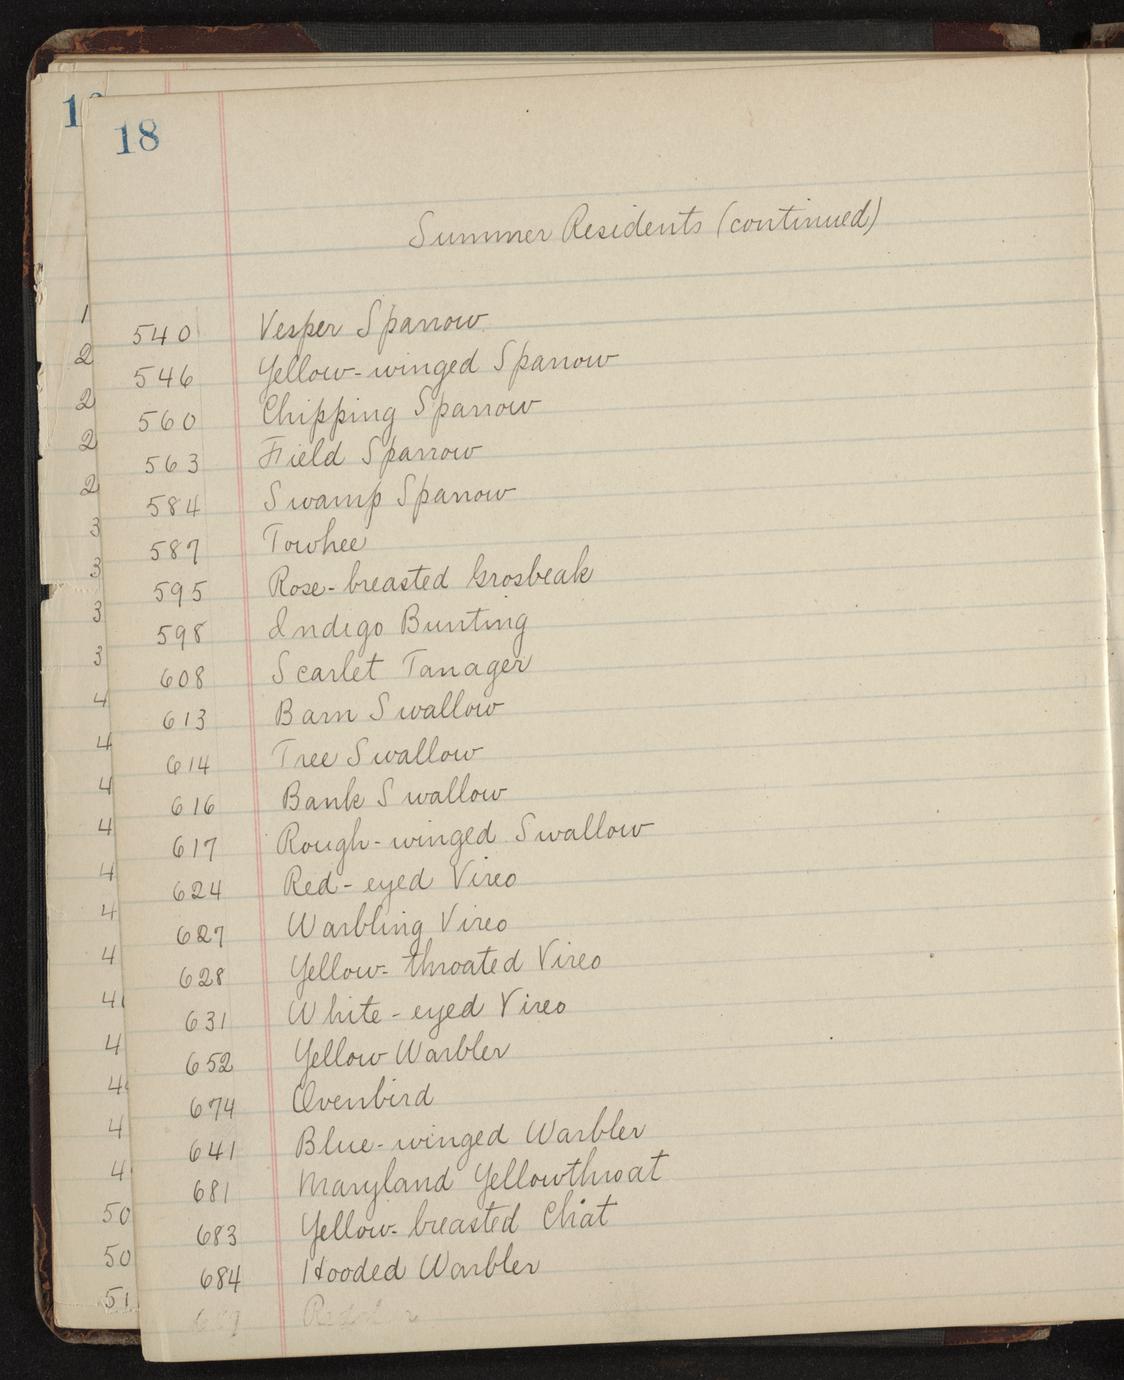 18
Summer Residents (continued)
540 Vesper Sparrow
546 Yellow-winged Sparrow
560 Chipping Sparrow
563 Field Sparrow
584 Swamp Sparrow
587 Towhee
595 Rose-breasted Grosbeak
598 Indigo Bunting
608 Scarlet Tanager
613 Barn Swallow
614 Tree Swallow
616 Bank Swallow
617 Rough-winged Swallow
624 Red-eyed Vireo
627 Warbling Vireo
628 Yellow-throated Vireo
631 White-eyed Vireo
652 Yellow Warbler
674 Ovenbird
641 Blue-winged Warbler
681 Maryland Yellowthroat
683 Yellow-breasted Chat
684 Hooded Warbler